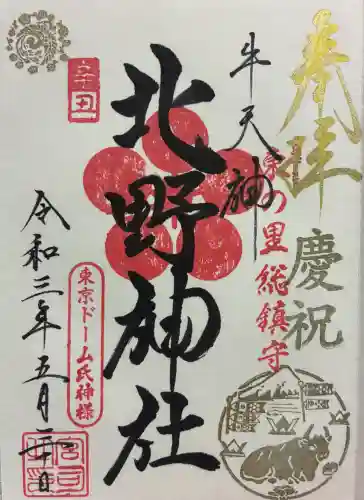 奉拝
慶祝
東の里総鎮守
牛天神
北野神社
辛丑
令和三年五月二十日
東京ドーム氏神様